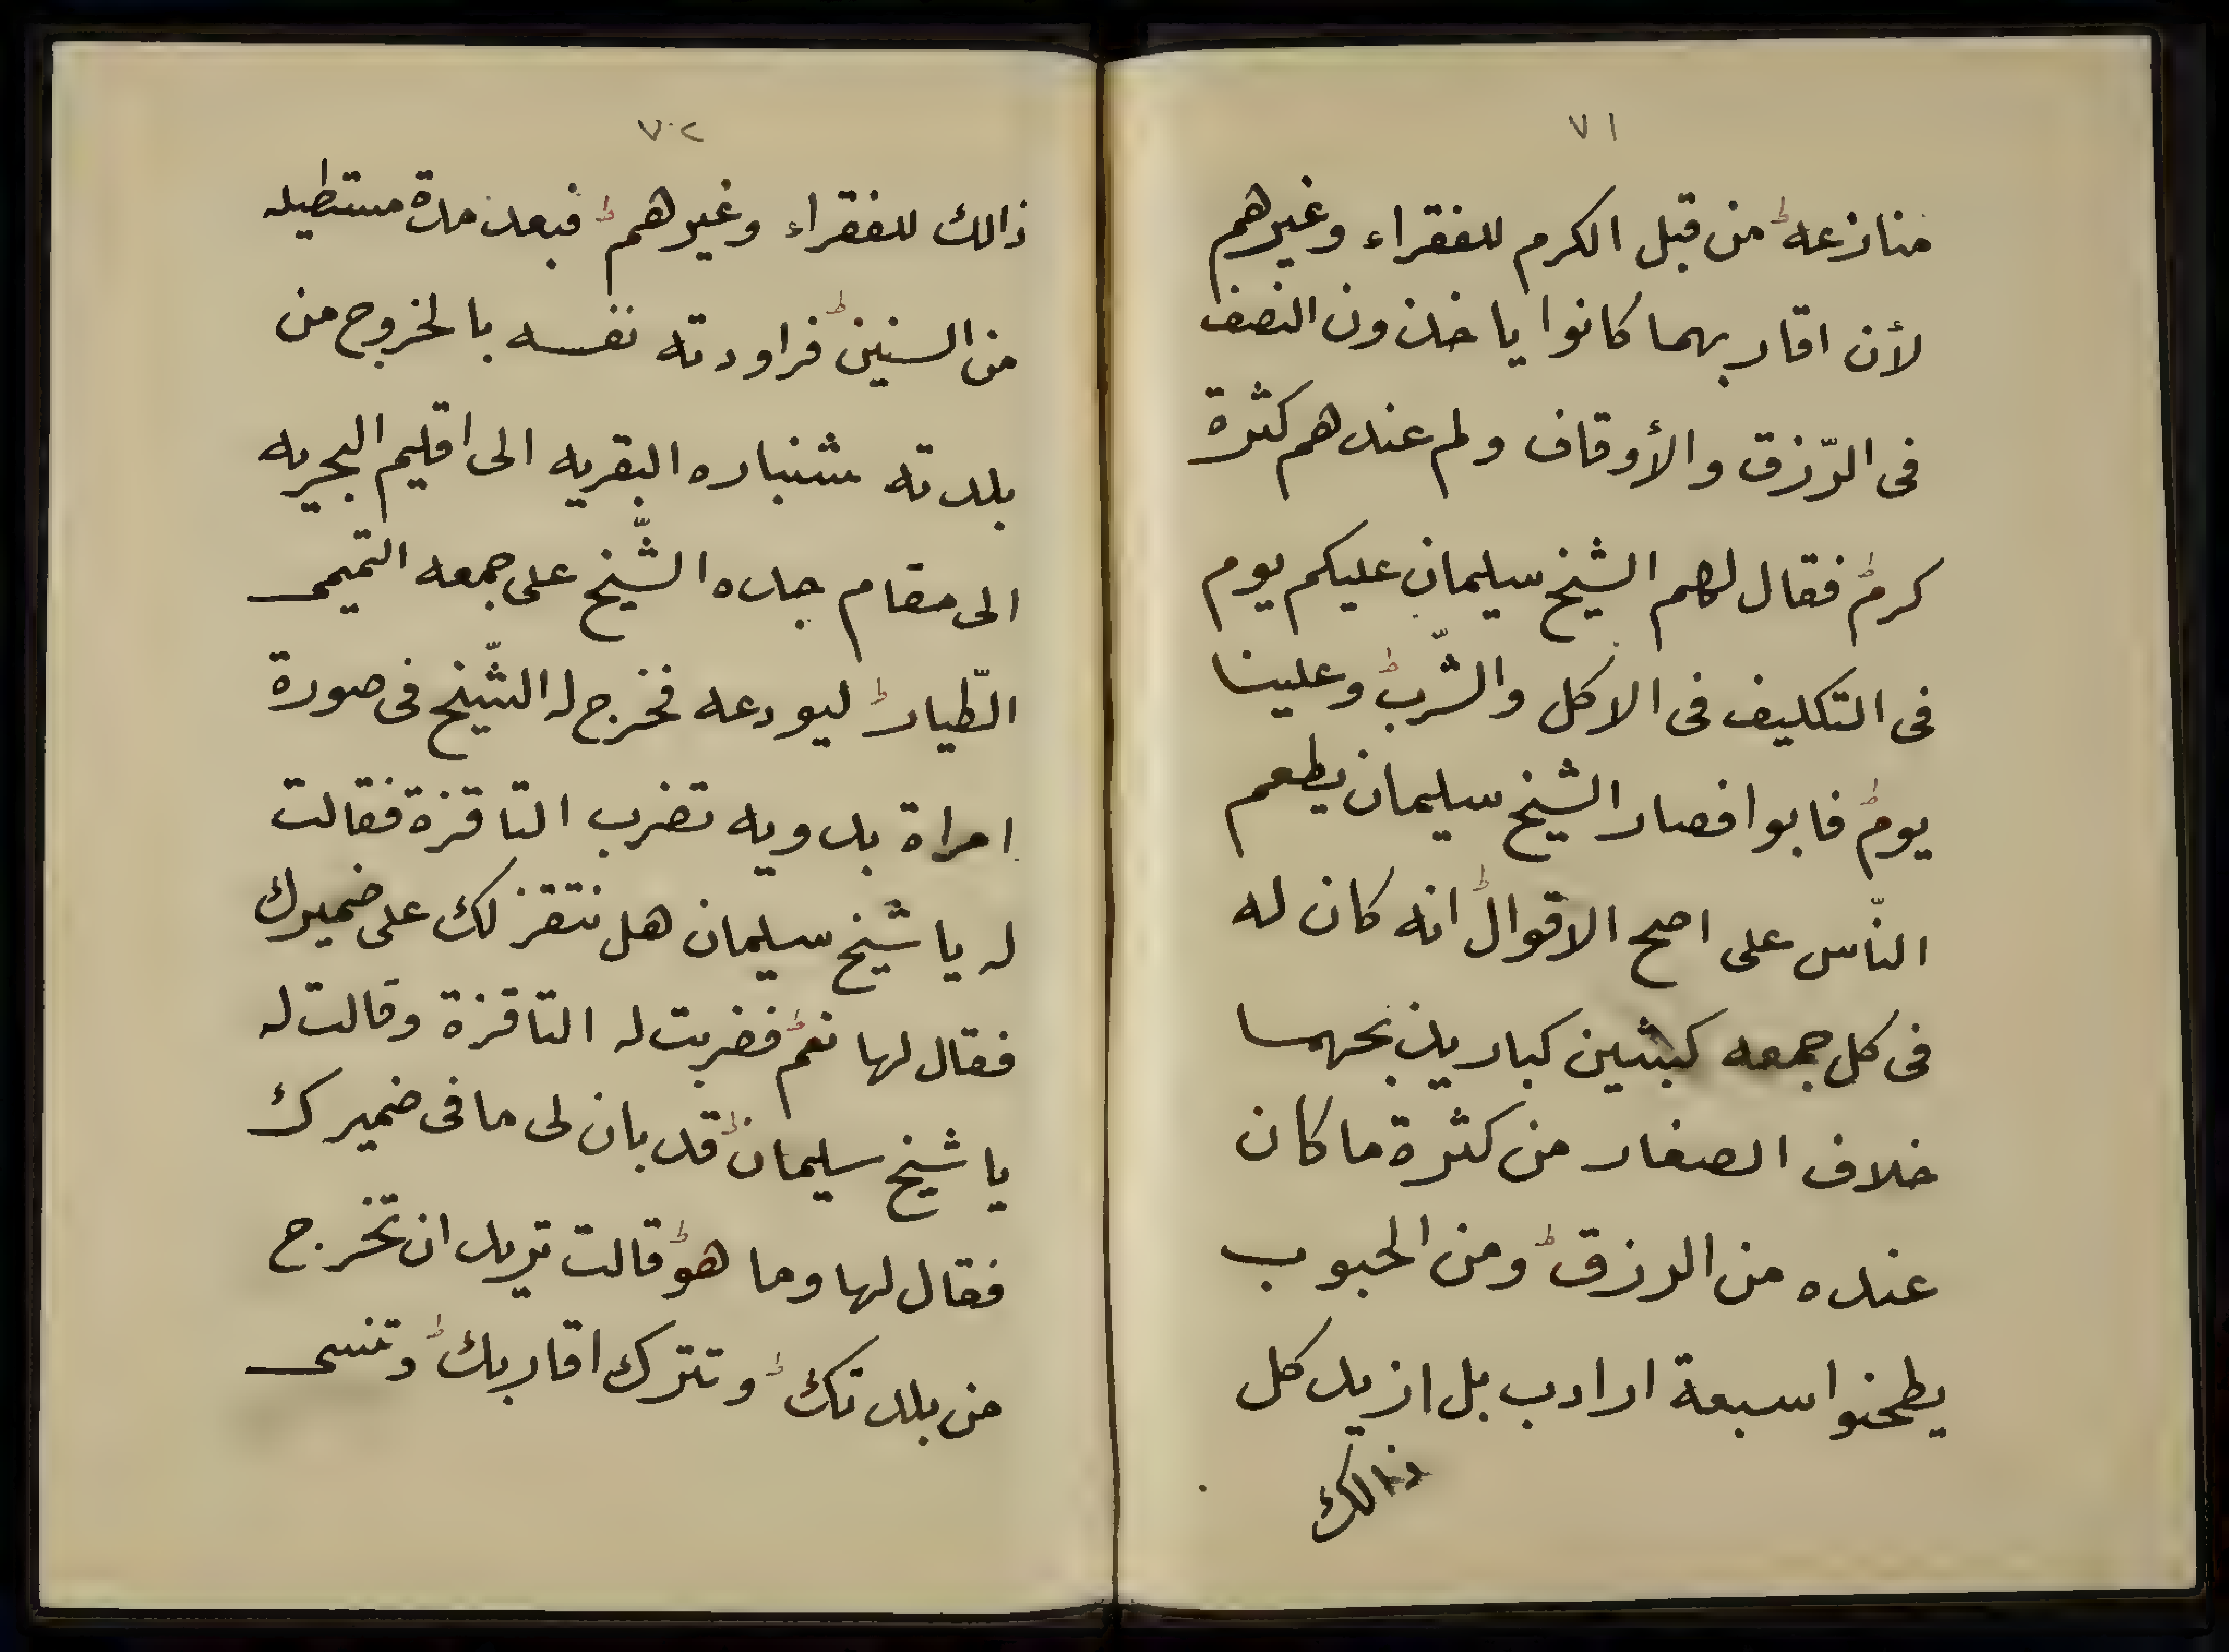 ٧١
منازعه من قبل الكرم للفقراء وغيرهم
لأن اقاربهما كانوا ياخذون النصف
فى الرّزق والأوقاف ولم عندهم كثرة
كرم فقال لهم الشيخ سليمان عليكم يوم
فى التكليف فى الاكل والشّرب وعلينا
يوم فابوا فصار الشيخ سليمان يطعم
النّاس على اصح الاقوال انه كان له
فى كل جمعه كبشين كبار يذبحهما
خلاف الصغار من كثرة ما كان
عنده من الرزق ومن الحبوب
يطحنوا سبعة ارادب بل ازيد كل
ذالك
٧٢
ذالك للفقراء وغيرهم فبعد مدة مستطيله
من السنين فراودته نفسه بالخروج من
بلدته شنباره البقريه الى اقليم البحريه
الى مقام جده الشّيخ على جمعه التميمى
الطّيار ليودعه فخرج له الشّيخ فى صورة
امراة بدويه تضرب التاقزة فقالت
له يا شيخ سليمان هل نتقز لك على ضميرك
فقال لها نعم فضربت له التاقزة وقالت له
يا شيخ سليمان قد بان لى ما فى ضميرك
فقال لها وما هو قالت تريد ان تخرج
من بلدتك وتترك اقاربك وتنسى